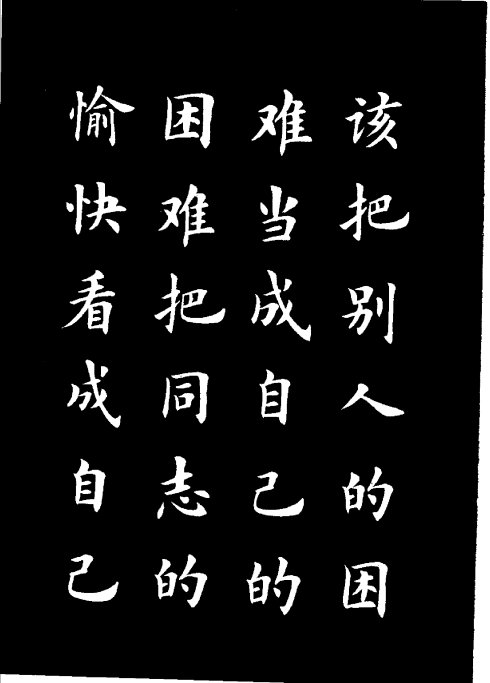 该把别人的困
难当成自己的
困难把同志的
愉快看成自己